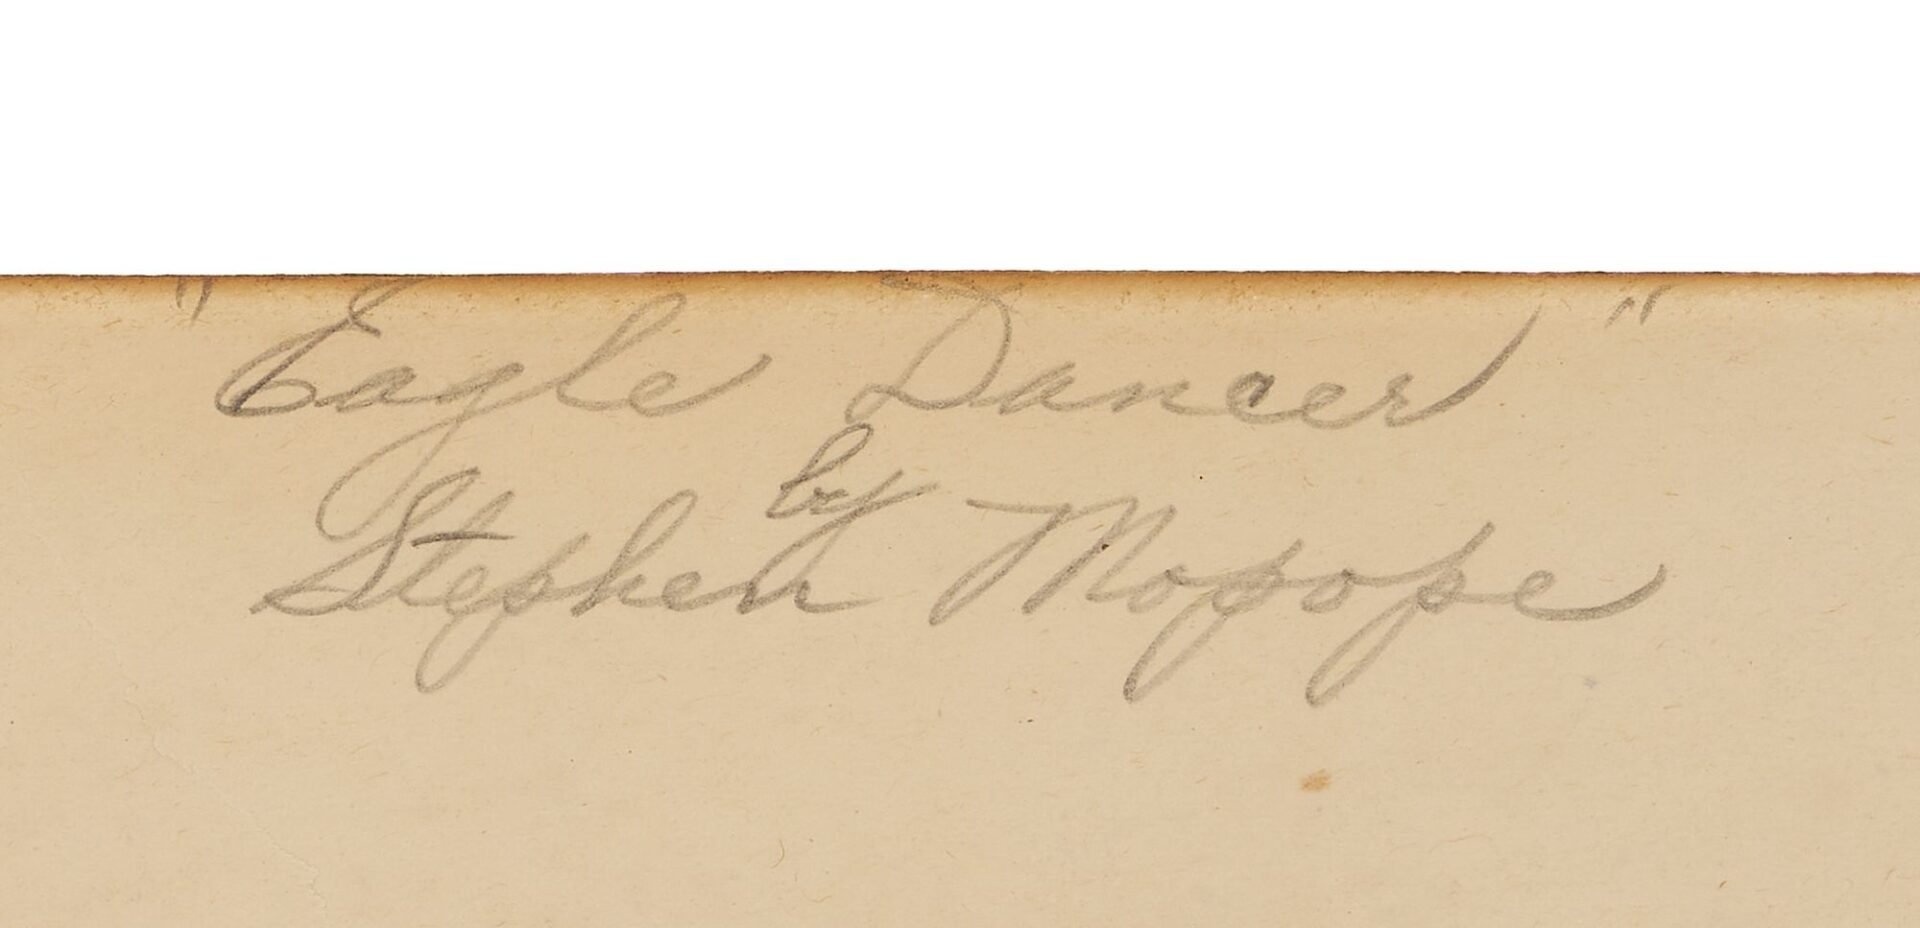 "Eagle Dancer"
by
Stephen Mopope